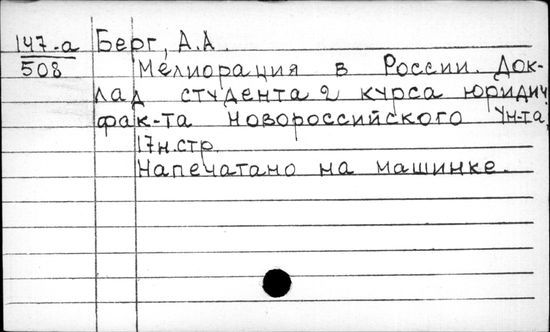 147-а Берг, А.А.
508 Мелиорация в России. Док-
лад студента 2 курса юридич
фак-та Новороссийского Ун-та,
17н.стр.
Напечатано на машинке.